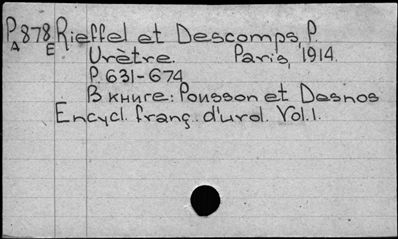 P 878 Rieffel et Descomps, P.
A E Urètre. Paris, 1914.
P. 631-674
В книге: Pousson et Desnos
Encycl. franç. d'urol. Vol. 1.